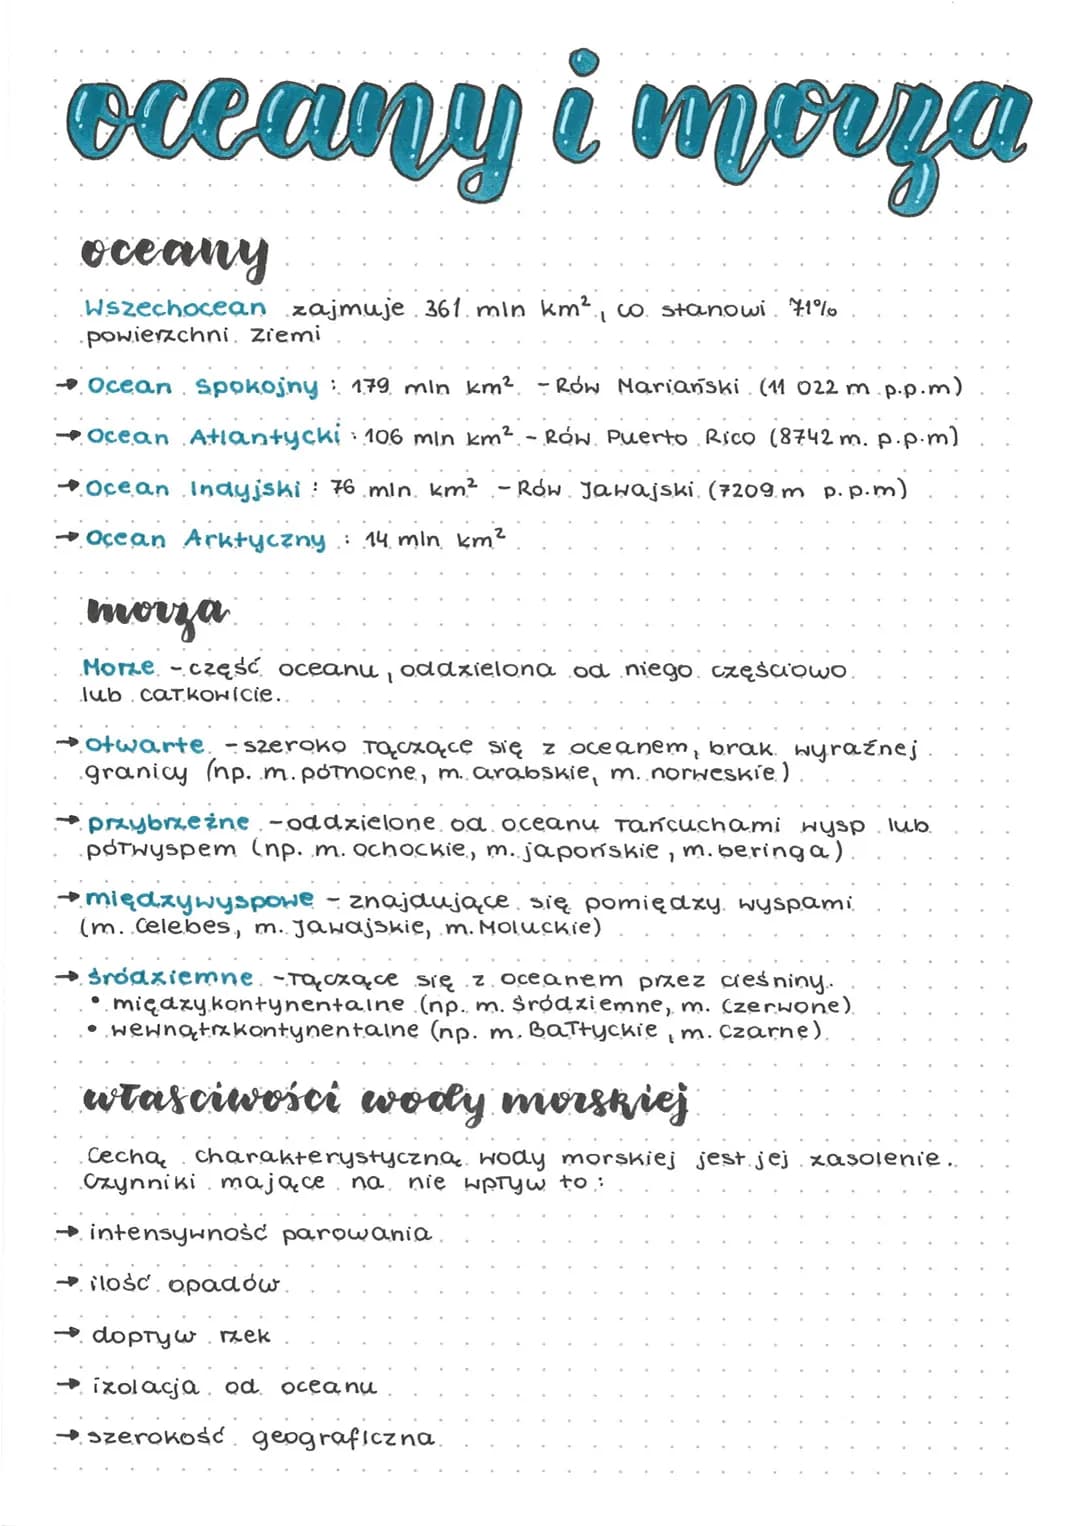 oceany i morza
oceany
Wszechocean zajmuje 361 mln km², co stanowi 71%
powierzchni Ziemi
→ Ocean Spokojny : 179 mln km² - Rów Mariański (11 022 m p.p.m)
→ Ocean Atlantycki : 106 mln km² - Rów Puerto Rico (8742 m. p.p.m)
→ Ocean Indyjski : 76 mln km² - Rów Jawajski (7209 m p.p.m)
→ Ocean Arktyczny : 14 mln km²
morza
Morze - część oceanu, oddzielona od niego częściowo
lub całkowicie.
→ otwarte - szeroko łączące się z oceanem, brak wyraźnej
granicy (np. m. północne, m. arabskie, m. norweskie)
→ przybrzeżne - oddzielone od oceanu łańcuchami wysp lub
półwyspem (np. m. ochockie, m. japońskie, m. beringa)
→ międzywyspowe - znajdujące się pomiędzy wyspami
(m. Celebes, m. Jawajskie, m. Moluckie)
→ śródziemne - łączące się z oceanem przez cieśniny.
• międzykontynentalne (np. m. śródziemne, m. Czerwone)
• wewnątrzkontynentalne (np. m. Bałtyckie, m. Czarne)
właściwości wody morskiej
Cechą charakterystyczną wody morskiej jest jej zasolenie.
Czynniki mające na nie wpływ to :
→ intensywność parowania
→ ilość opadów
→ dopływ rzek
→ izolacja od oceanu
→ szerokość geograficzna